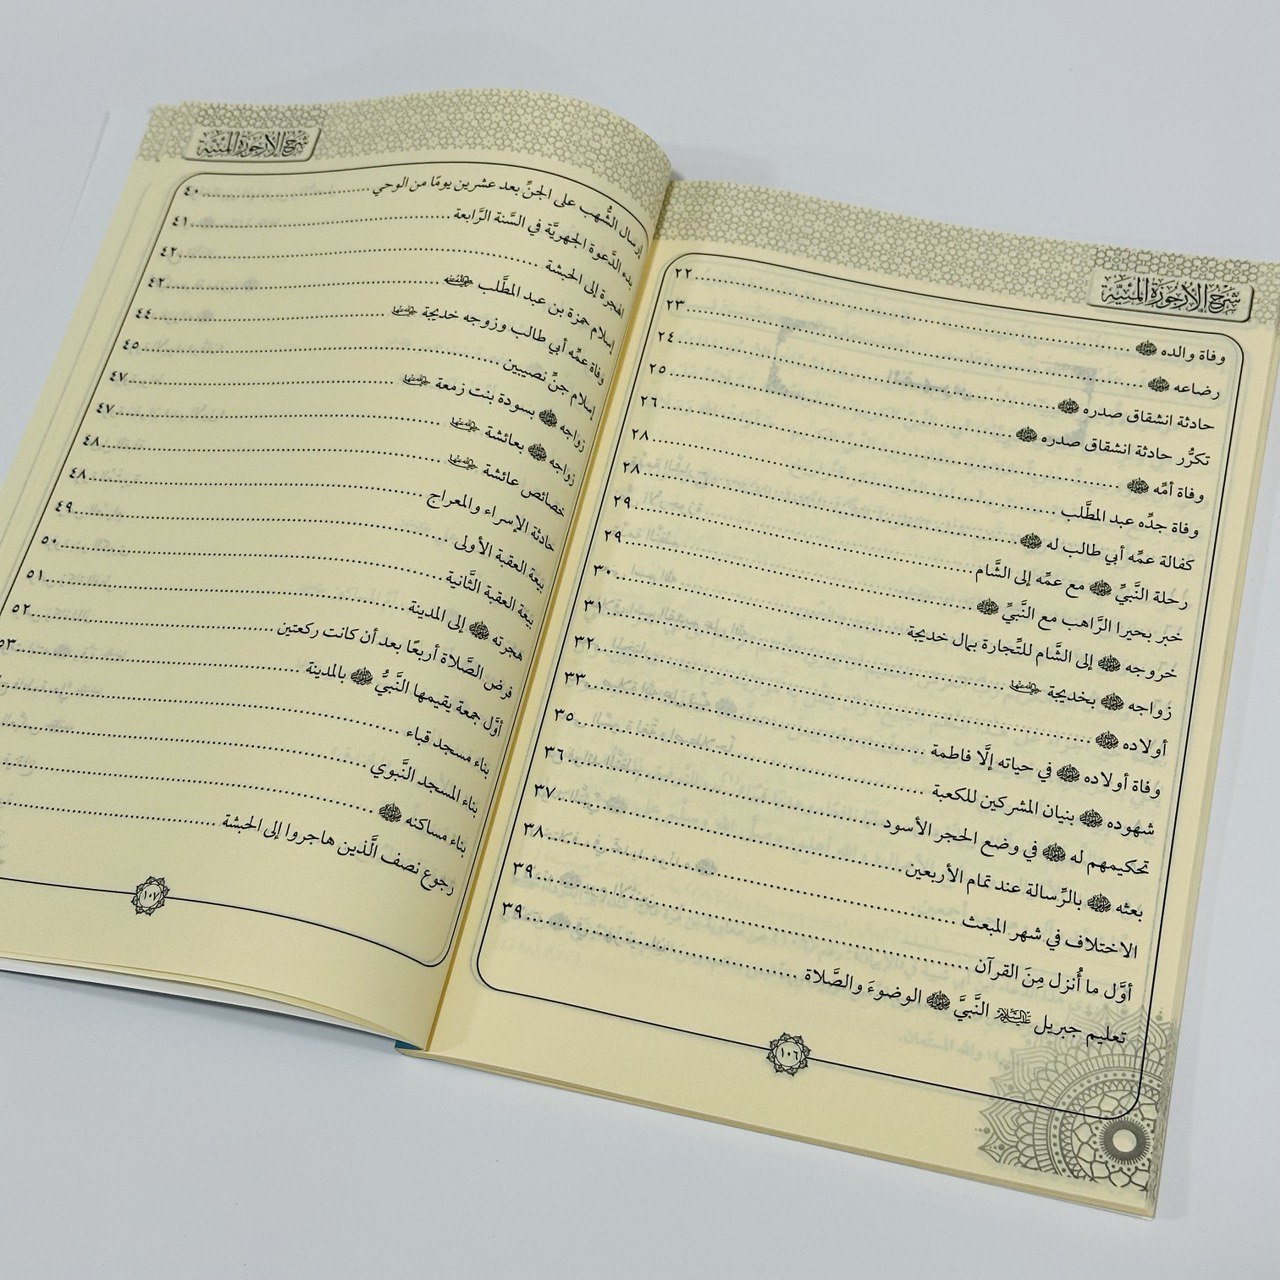 شرح الأرجوزة الميئية
وفاة والده ﷺ ........ ٢٢
رضاعه ﷺ ........ ٢٣
حادثة انشقاق صدره ﷺ ........ ٢٤
تكرُّر حادثة انشقاق صدره ﷺ ........ ٢٥
وفاة أمِّه ﷺ ........ ٢٦
وفاة جدِّه عبد المطَّلب ........ ٢٨
كفالة عمِّه أبي طالب له ﷺ ........ ٢٨
رحلة النَّبيِّ ﷺ مع عمِّه إلى الشَّام ........ ٢٩
خبر بحيرا الرَّاهب مع النَّبيِّ ﷺ ........ ٢٩
خروجه ﷺ إلى الشَّام للتِّجارة بمال خديجة ........ ٣٠
زواجه ﷺ بخديجة رضي الله عنها ........ ٣١
أولاده ﷺ ........ ٣٢
وفاة أولاده ﷺ في حياته إلَّا فاطمة ........ ٣٣
شهوده ﷺ بنيان المشركين للكعبة ........ ٣٥
تحكيمهم له ﷺ في وضع الحجر الأسود ........ ٣٦
بعثه ﷺ بالرِّسالة عند تمام الأربعين ........ ٣٧
الاختلاف في شهر المبعث ........ ٣٨
أوَّل ما أُنزل مِنَ القرآن ........ ٣٩
تعليم جبريل عليه السلام النَّبيَّ ﷺ الوضوءَ والصَّلاة ........ ٣٩
١٠٦
شرح الأرجوزة الميئية
إرسال الشُّهب على الجنِّ بعد عشرين يومًا من الوحي ........ ٤٠
بدء الدَّعوة الجهريَّة في السَّنة الرَّابعة ........ ٤١
الهجرة إلى الحبشة ........ ٤٢
إسلام حمزة بن عبد المطَّلب رضي الله عنه ........ ٤٢
وفاة عمِّه أبي طالب وزوجه خديجة رضي الله عنها ........ ٤٤
إسلام جنِّ نصيبين ........ ٤٥
زواجه ﷺ بسودة بنت زمعة رضي الله عنها ........ ٤٧
زواجه ﷺ بعائشة رضي الله عنها ........ ٤٧
خصائص عائشة رضي الله عنها ........ ٤٨
حادثة الإسراء والمعراج ........ ٤٨
بيعة العقبة الأولى ........ ٤٩
بيعة العقبة الثَّانية ........ ٥٠
هجرته ﷺ إلى المدينة ........ ٥١
فرض الصَّلاة أربعًا بعد أن كانت ركعتين ........ ٥٢
أوَّل جمعة يقيمها النَّبيُّ ﷺ بالمدينة ........ ٥٣
بناء مسجد قباء ........
بناء المسجد النَّبوي ........
بناء مساكنه ﷺ ........
رجوع نصف الَّذين هاجروا إلى الحبشة ........
١٠٧